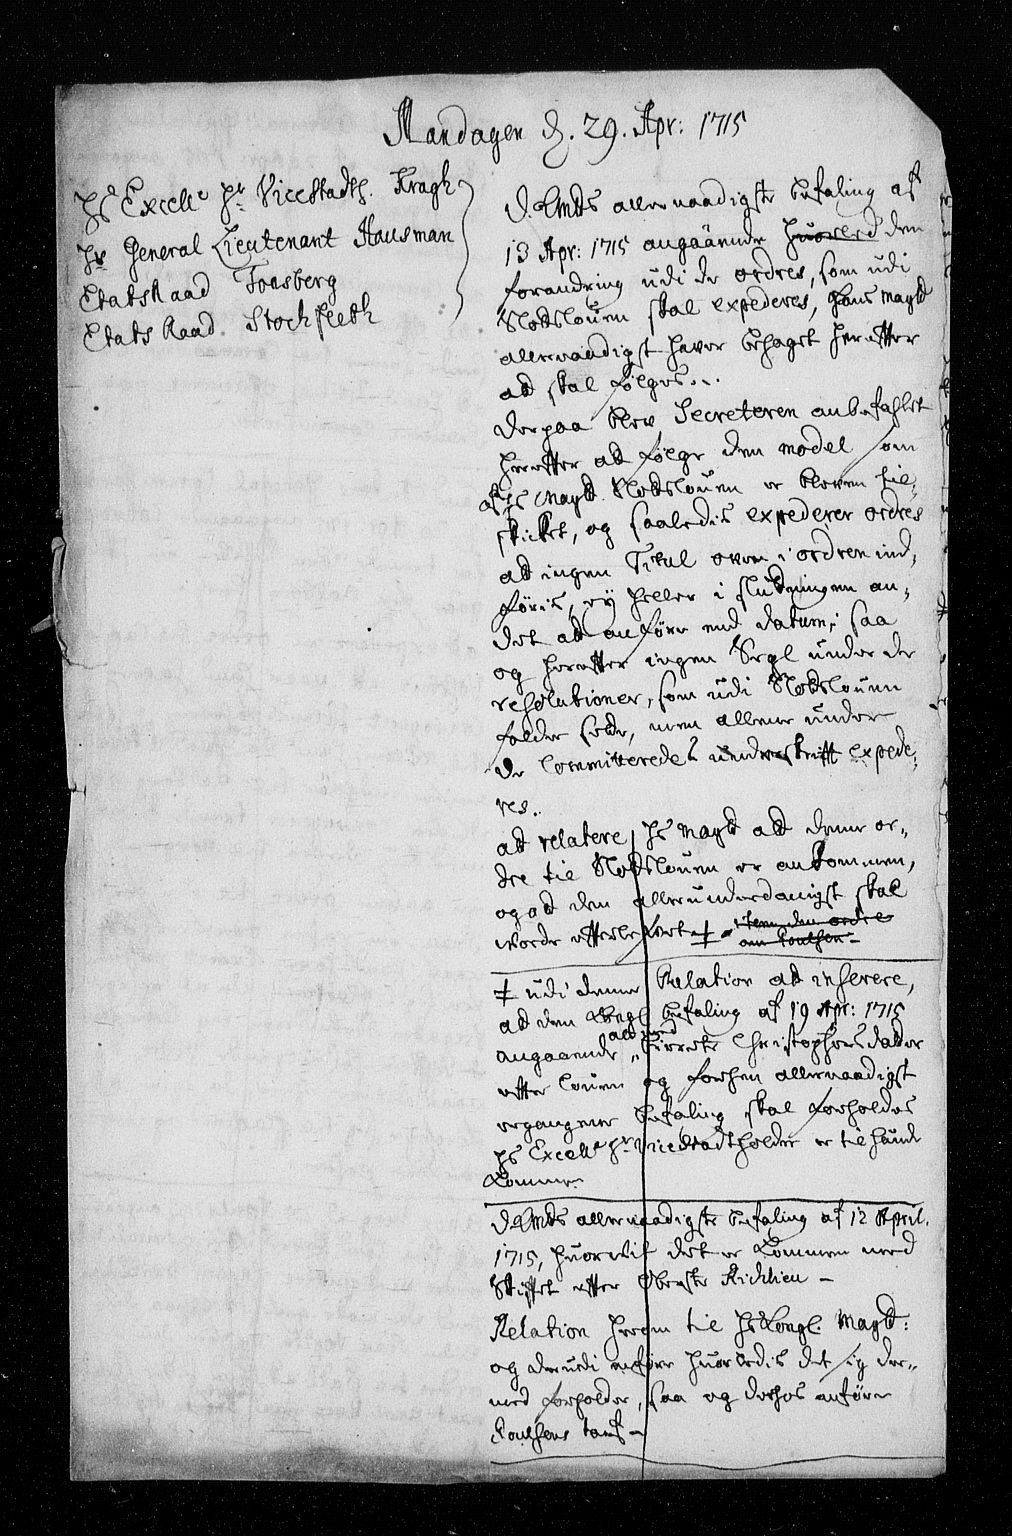 Mandagen d. 29. Apr: 1715
Hs Excelle Hr Vicestadth. Kragh
Hr General Lieutenant Hausman
EtatsRaad Tonsberg
Etats Raad Stockfleth
allernaadigste befaling af
13 Apr: 1715 angaaende hvorved den
forandring udi de ordres, som udi
Slotslouen skal expederes, Hans Mayts
allernaadigst haver behaget herefter
at skal følges...
Derpaa blev Secreteren anbefahlet
herefter at følge den model som
af Hs Mayts Slotslouen er bleven til-
skicket, og saaledis expederer ordres
at ingen Titul oven i ordren ind-
føris, ey heller i slutningen an-
det at anføre end datum, saa
og herefter ingen Segl under de
resolutioner, som udi Slotslouen
falder sted, men allene under
de Committeredes underskrift expede-
res.
at relatere Hs Mayt at denne or-
dre til Slotslouen er ankommen,
og at den allerunderdanigst skal
worde efterlefvet ‡ item den ordre
om Poulsen
‡ udi denne Relation at inserere,
at den Kongl befaling af 19 Apr: 1715
angaaende Christophersdatter
efter louen og forhen allernaadigst
ergangne befaling skal forholdes
Hs Excelle Hr Vicestadtholder er til hænde
kommen.
allernaadigste befaling af 12 April.
1715, huorvit det er kommen med
Skiftet efter Oberste
Relation herom til Hs Kongl. Mayt:
og derudi anføre huorledis det sig der-
med forholder, saa og derhos anføre
Poulsens